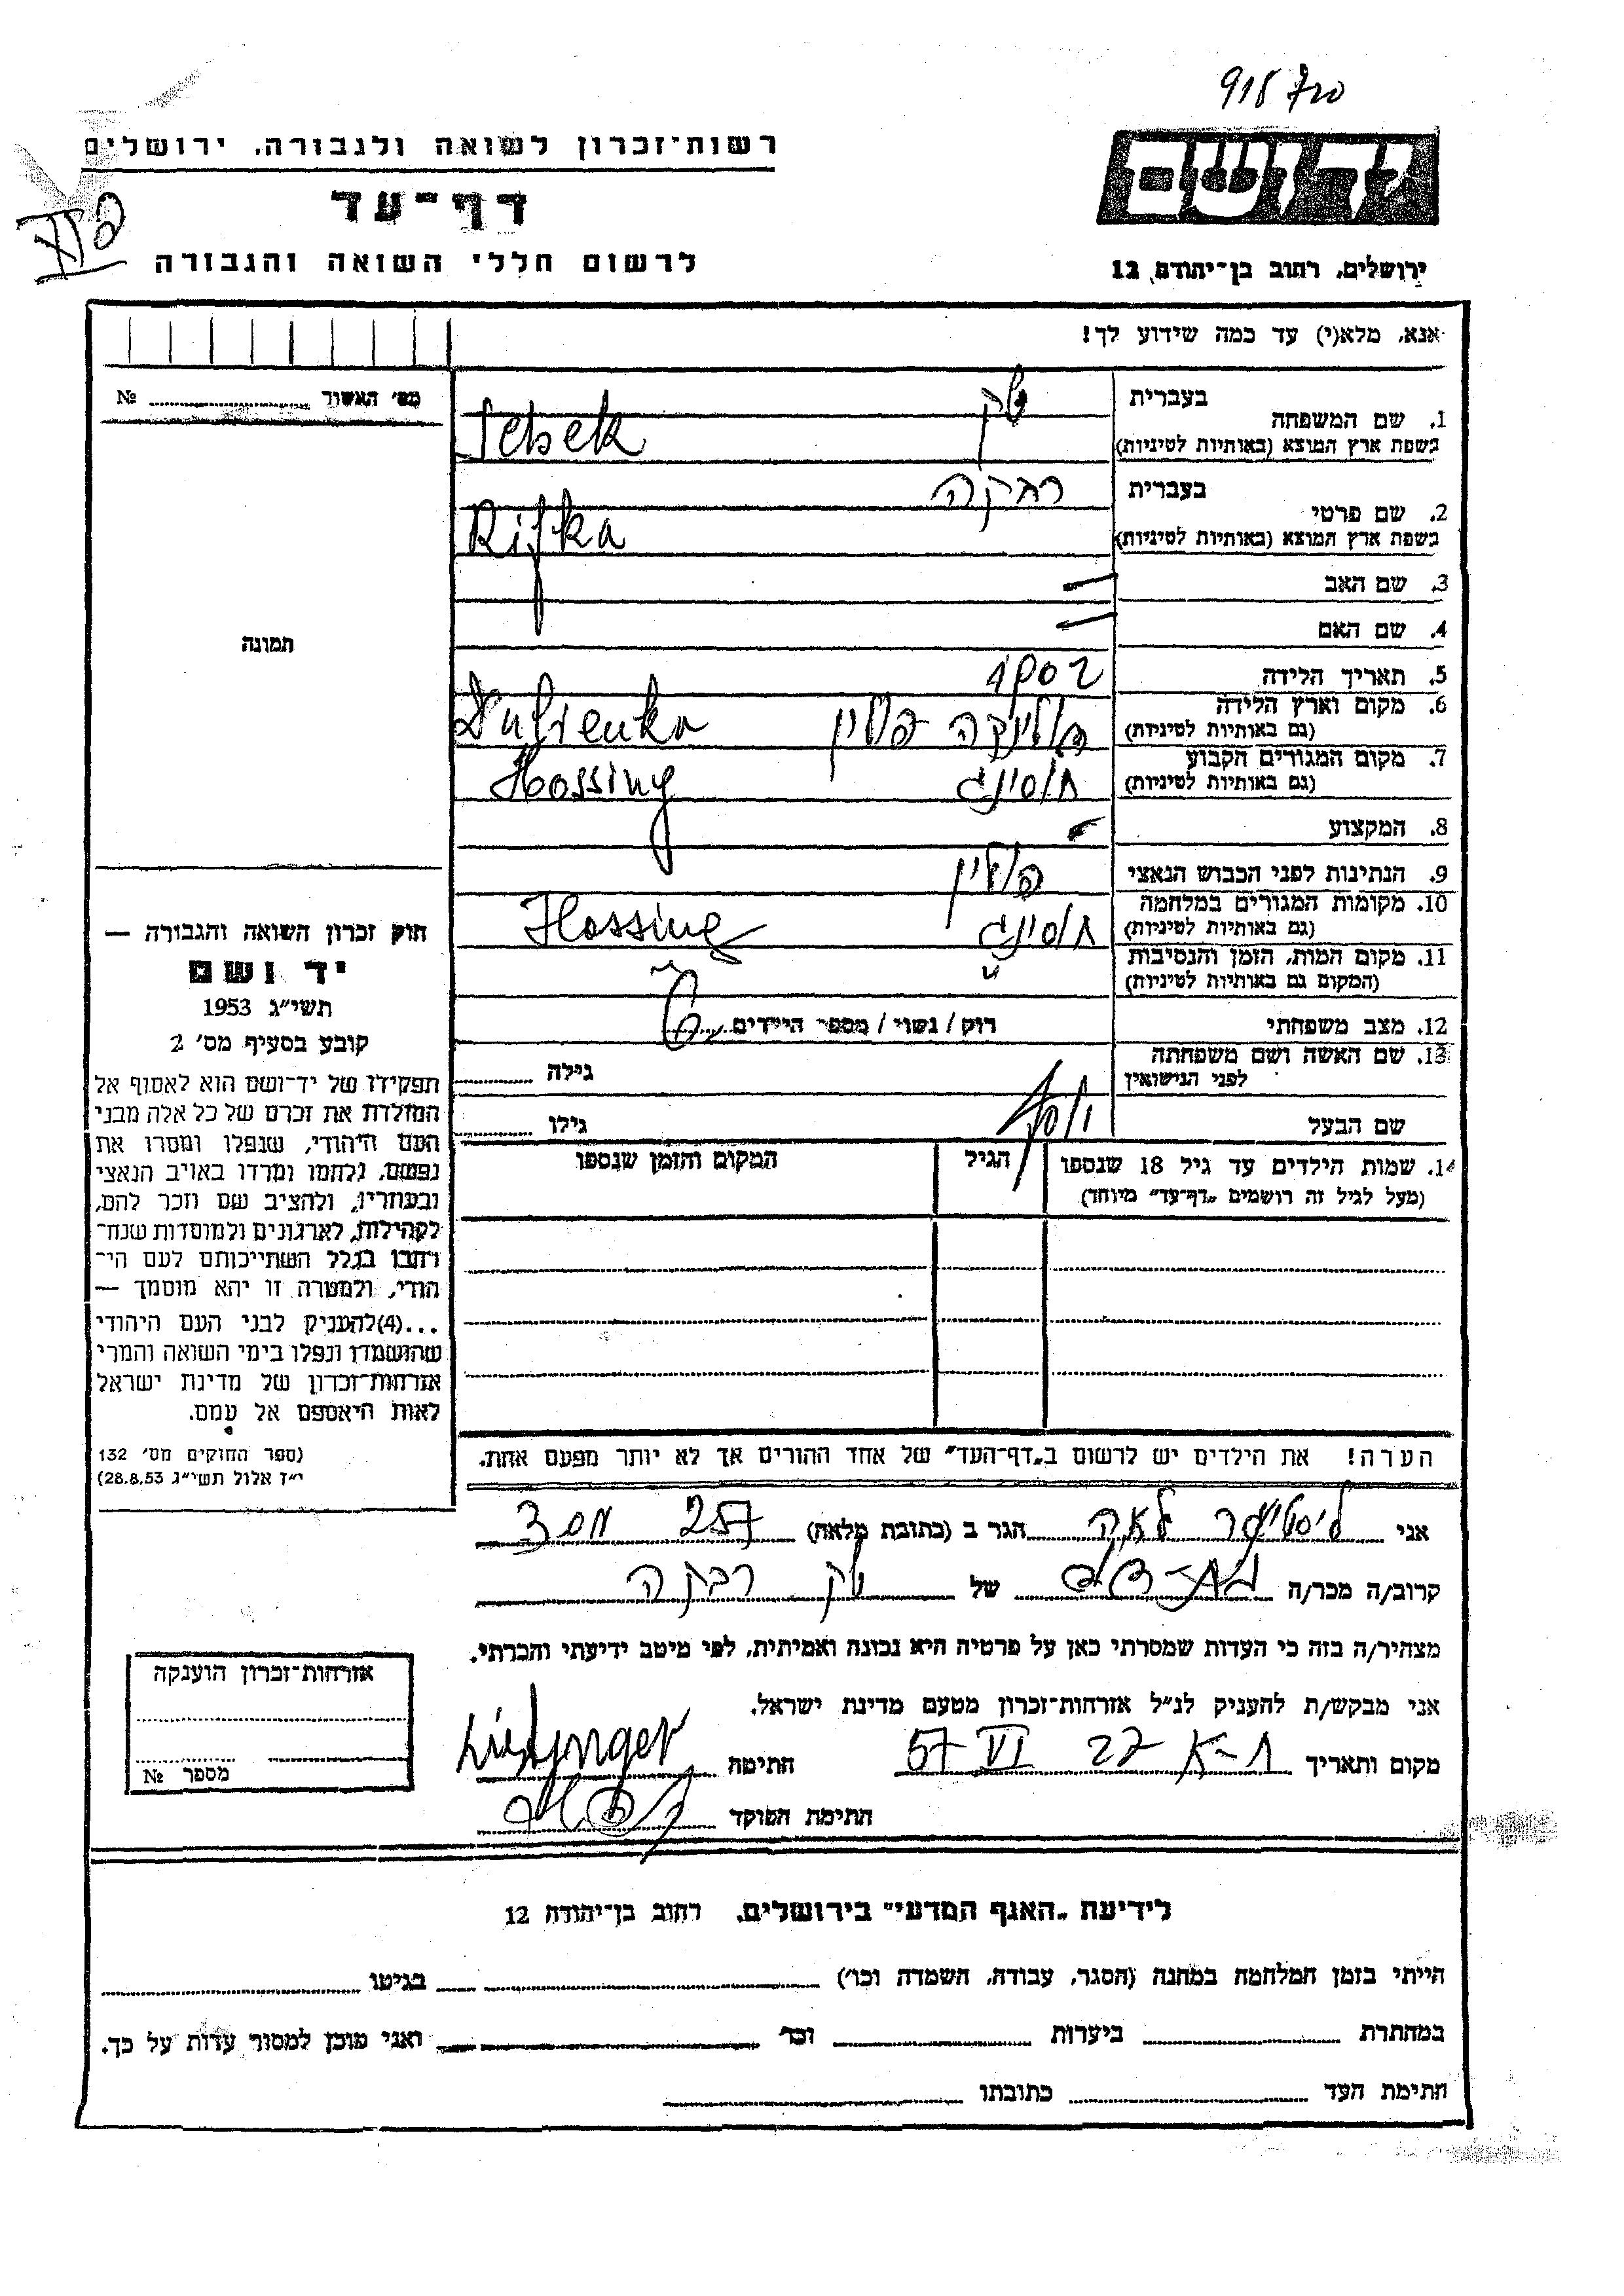 918 700
רשות־זכרון לשואה ולגבורה, ירושלים
יד ושם
דף־עד
לרשום חללי השואה והגבורה
ירושלים, רחוב בן־יהודה 12
אנא, מלא(י) עד כמה שידוע לך!
מס׳ האשור №
1. שם המשפחה
בעברית
בשפת ארץ המוצא (באותיות לטיניות)
2. שם פרטי
בעברית
רבקה
בשפת ארץ המוצא (באותיות לטיניות) Rifka
3. שם האב —
4. שם האם —
5. תאריך הלידה
6. מקום וארץ הלידה
(גם באותיות לטיניות)
פולין Dubienka
7. מקום המגורים הקבוע
(גם באותיות לטיניות)
Hossing
8. המקצוע
9. הנתינות לפני הכבוש הנאצי פולין
10. מקומות המגורים במלחמה
(גם באותיות לטיניות)
Hossing
11. מקום המות, הזמן והנסיבות
(המקום גם באותיות לטיניות)
12. מצב משפחתי רוק / נשוי / מספר הילדים 6
13. שם האשה ושם משפחתה
לפני הנישואין
גילה
שם הבעל יוסף גילו
14. שמות הילדים עד גיל 18 שנספו
(מעל לגיל זה רושמים „דף־עד״ מיוחד)
הגיל
המקום והזמן שנספו
הערה! את הילדים יש לרשום ב„דף־העד״ של אחד ההורים אך לא יותר מפעם אחת.
תמונה
חוק זכרון השואה והגבורה —
יד ושם
תשי״ג 1953
קובע בסעיף מס׳ 2
תפקידו של יד־ושם הוא לאסוף אל
המולדת את זכרם של כל אלה מבני
העם היהודי, שנפלו ומסרו את
נפשם, נלחמו ומרדו באויב הנאצי
ובעוזריו, ולהציב שם וזכר להם,
לקהילות, לארגונים ולמוסדות שנח־
רבו בגלל השתייכותם לעם הי־
הודי, ולמטרה זו יהא מוסמך —
...(4)להעניק לבני העם היהודי
שהושמדו ונפלו בימי השואה והמרי
אזרחות־זכרון של מדינת ישראל
לאות היאספם אל עמם.
(ספר החוקים מס׳ 132
י״ז אלול תשי״ג 28.8.53)
אני לאה הגר ב (כתובת מלאה) 257
קרוב/ה מכר/ה של רבקה
מצהיר/ה בזה כי העדות שמסרתי כאן על פרטיה היא נכונה ואמיתית, לפי מיטב ידיעתי והכרתי.
אני מבקש/ת להעניק לנ״ל אזרחות־זכרון מטעם מדינת ישראל.
מקום ותאריך ת-א 27 VI 57 חתימה
חתימת הפוקד
אזרחות־זכרון הוענקה
מספר №
לידיעת „האגף המדעי״ בירושלים, רחוב בן־יהודה 12
הייתי בזמן המלחמה במחנה (הסגר, עבודה, השמדה וכו׳) בגיטו
במחתרת ביערות וכו׳ ואני מוכן למסור עדות על כך.
חתימת העד כתובתו